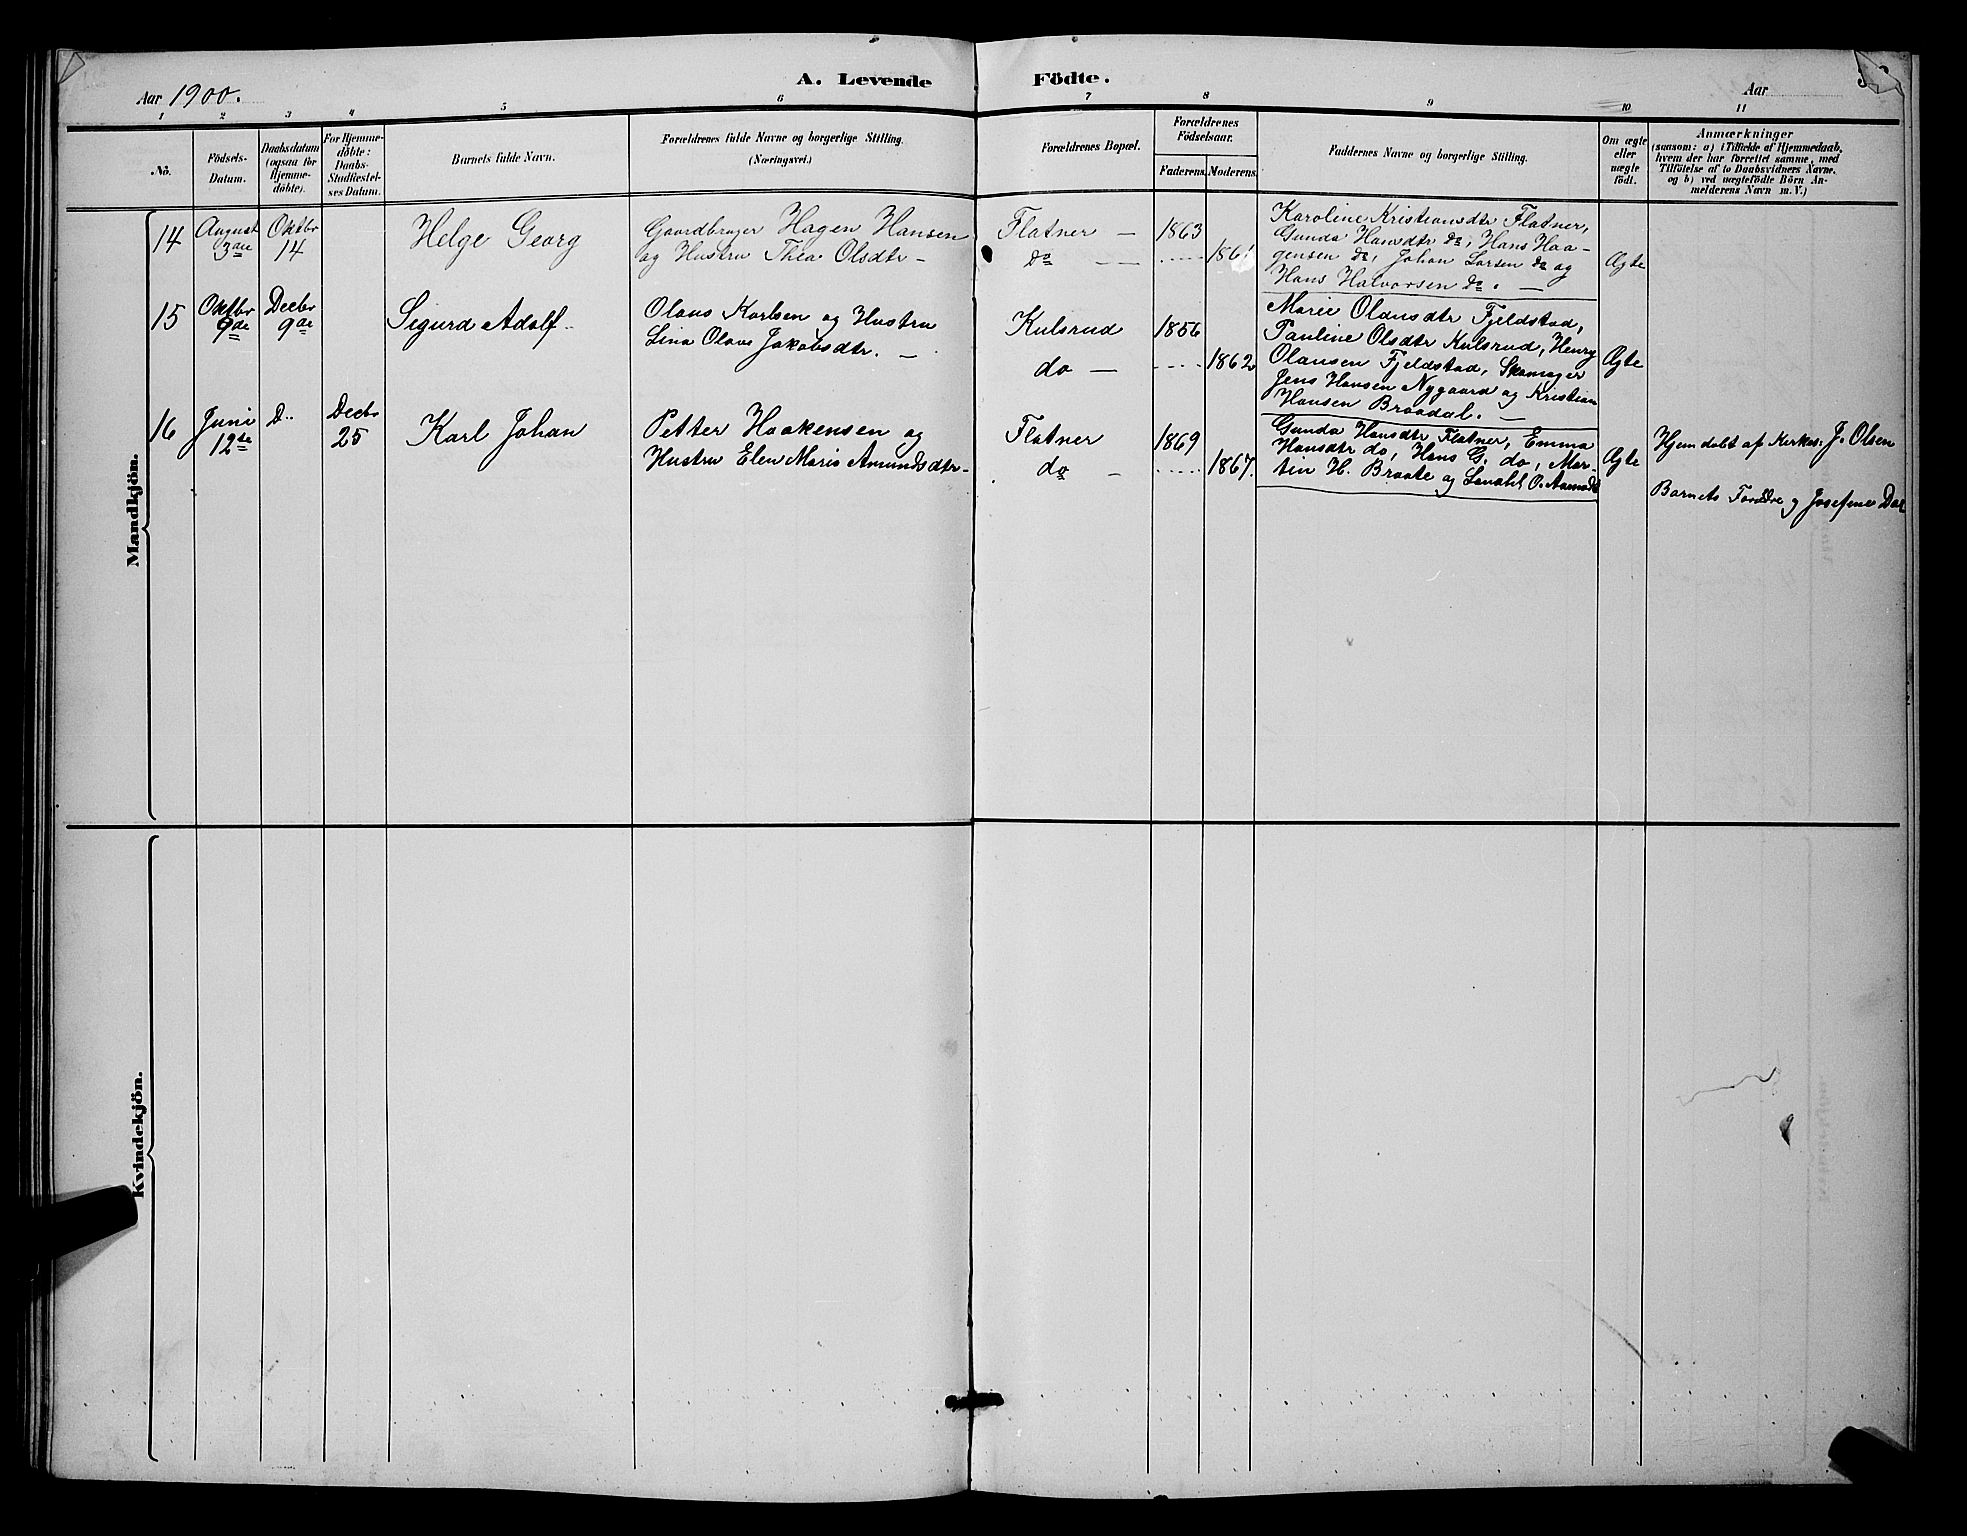 A. Levende Födte.
Aar 1900.
Aar
1 2 3 4 5 6 7 8 9 10 11
No.
Födsels-Datum.
Daabsdatum (ogsaa for Hjemme-döbte).
For Hjemme-döbte: Daabs-Stadfæstel-ses Datum.
Barnets fulde Navn.
Forældrenes fulde Navne og borgerlige Stilling.
(Næringsvei.)
Forældrenes Bopæl.
Forældrenes Födselsaar.
Faderens. Moderens.
Faddernes Navne og borgerlige Stilling.
Om ægte eller uægte födt.
Anmærkninger
(saasom: a) i Tilfælde af Hjemmedaab,
hvem der har forrettet samme, med
Tilföielse af to Daabsvidners Navne,
og b) ved uægtefödte Börn An-
melderens Navn m. V.)
Mandkjön.
14
August 3die
Oktbr 14
Helge Georg
Gaardbruger Hagen Hansen
og Hustru Thea Olsdtr –
Flatner –
Do –
1863
1861
Karoline Kristiansdtr Flatner,
Gunda Hansdtr do, Hans Haa-
gensen do, Johan Larsen do og
Hans Halvorsen do. –
Ægte
15
Oktbr 9de
Decbr 9de
Sigurd Adolf
Olaus Karlsen og Hustru
Lina Olava Jakobsdtr. –
Kulsrud
do –
1856
1862
Marie Olausdtr Fjeldstad,
Pauline Olsdtr Kulsrud, Henry
Olausen Fjeldstad, Skomager
Jens Hansen Nygaard og Kristian
Hansen Braadal. –
Ægte
16
Juni 12te
D..
Decbr 25
Karl Johan
Petter Haakensen og
Hustru Elen Marie Amundsdtr –
Flatner
do –
1869
1867.
Gunda Hansdtr Flatner, Emma
Hansdtr do, Hans G. do, Mar-
tin H. Braate og O.
Ægte
Hjemdøbt af Kirkes. J. Olsen
Barnets Forældre og Josefine Dal
Kvindekjön.